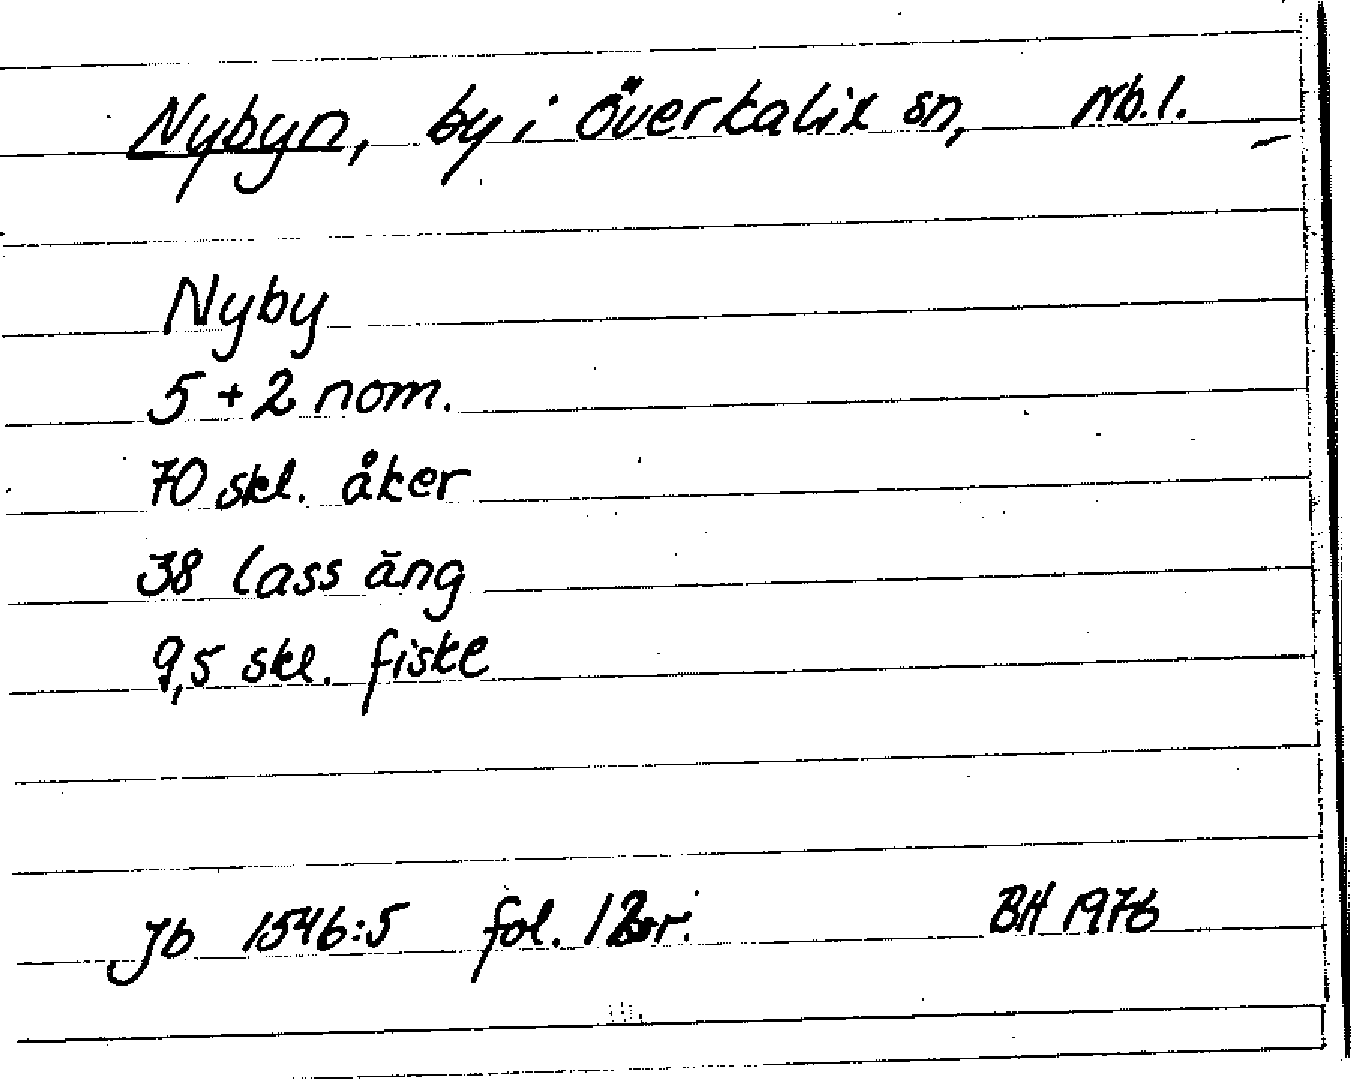 Nybyn, by i Överkalix sn, Nb.l.
Nyby
5 + 2 nom.
70 skl. åker
38 lass äng
9,5 skl. fiske
Jb 1546:5 fol. BH 1976